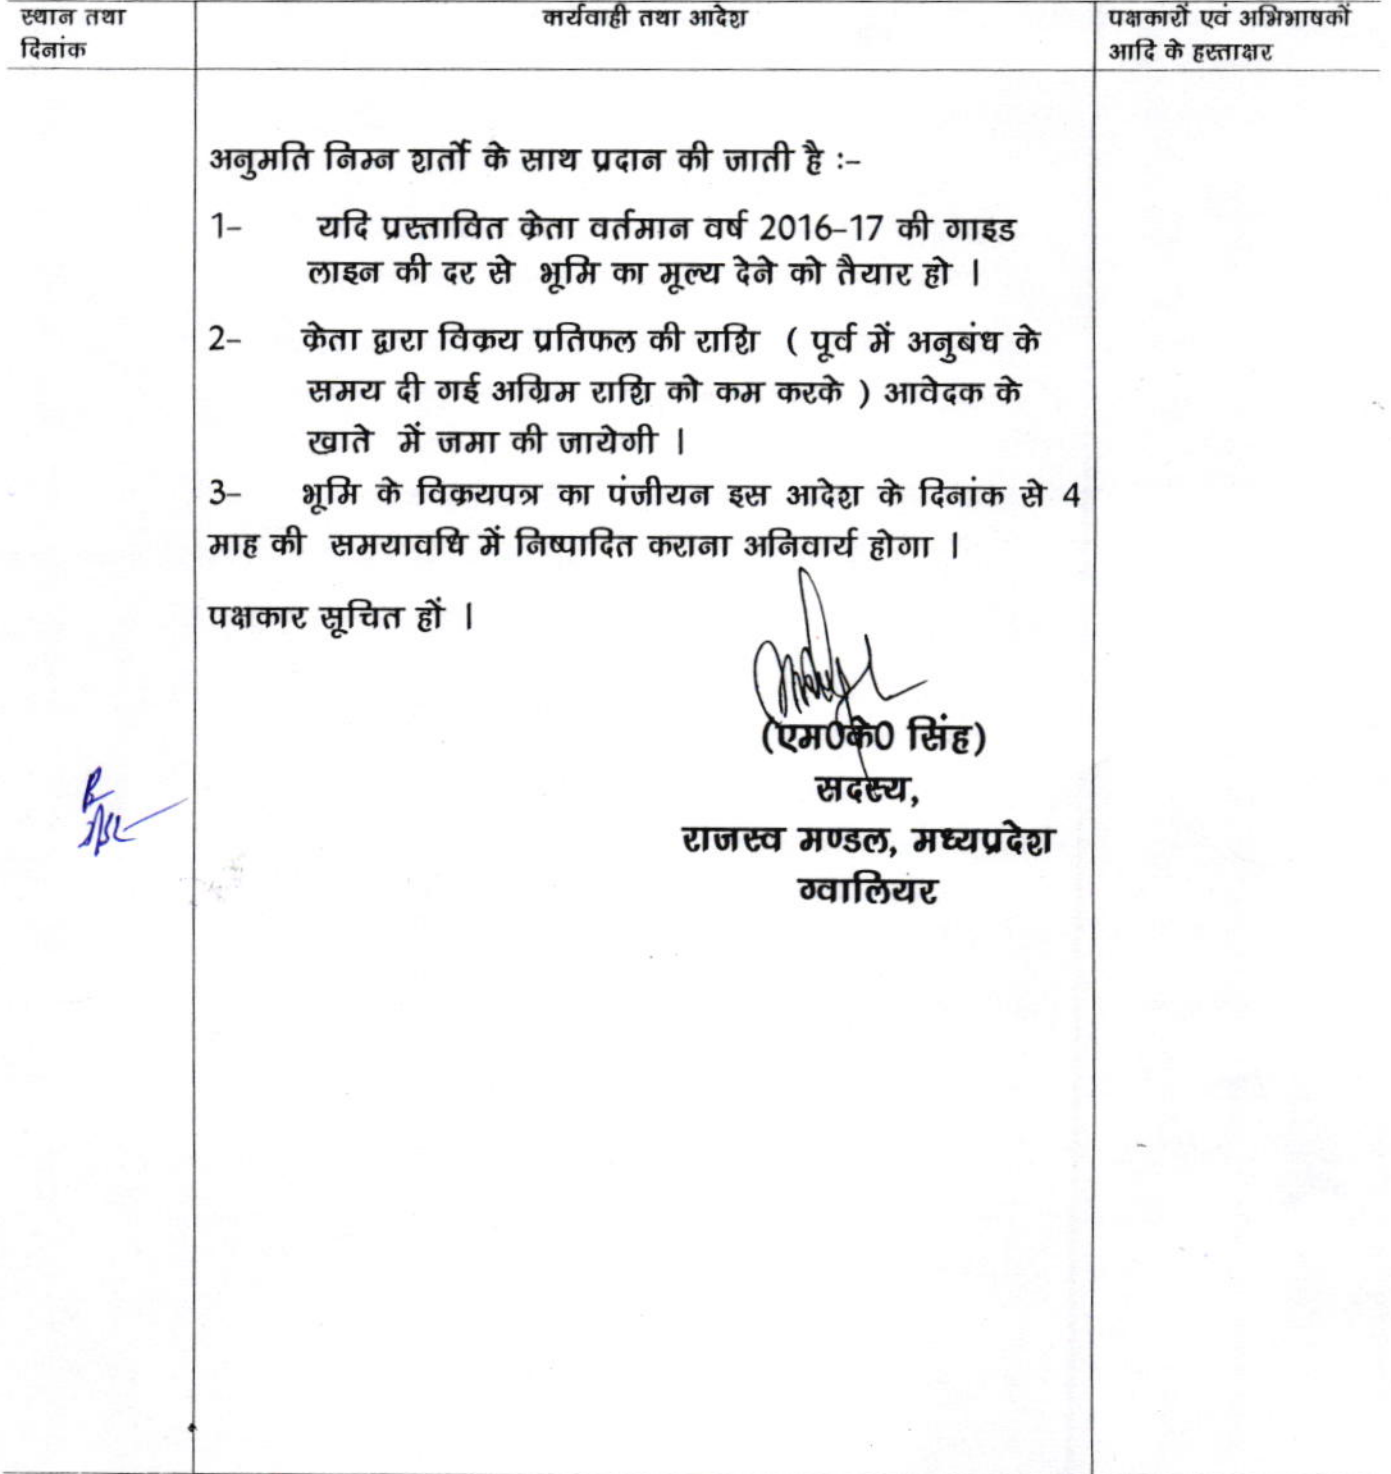 स्थान तथा
दिनांक
कार्यवाही तथा आदेश
पक्षकारों एवं अभिभाषकों
आदि के हस्ताक्षर
अनुमति निम्न शर्तो के साथ प्रदान की जाती है :–
1– यदि प्रस्तावित क्रेता वर्तमान वर्ष 2016–17 की गाइड
लाइन की दर से भूमि का मूल्य देने को तैयार हो ।
2– क्रेता द्वारा विक्रय प्रतिफल की राशि ( पूर्व में अनुबंध के
समय दी गई अग्रिम राशि को कम करके ) आवेदक के
खाते में जमा की जायेगी ।
3– भूमि के विक्रयपत्र का पंजीयन इस आदेश के दिनांक से 4
माह की समयावधि में निष्पादित कराना अनिवार्य होगा ।
पक्षकार सूचित हों ।
(एम0के0 सिंह)
सदस्य,
राजस्व मण्डल, मध्यप्रदेश
ग्वालियर